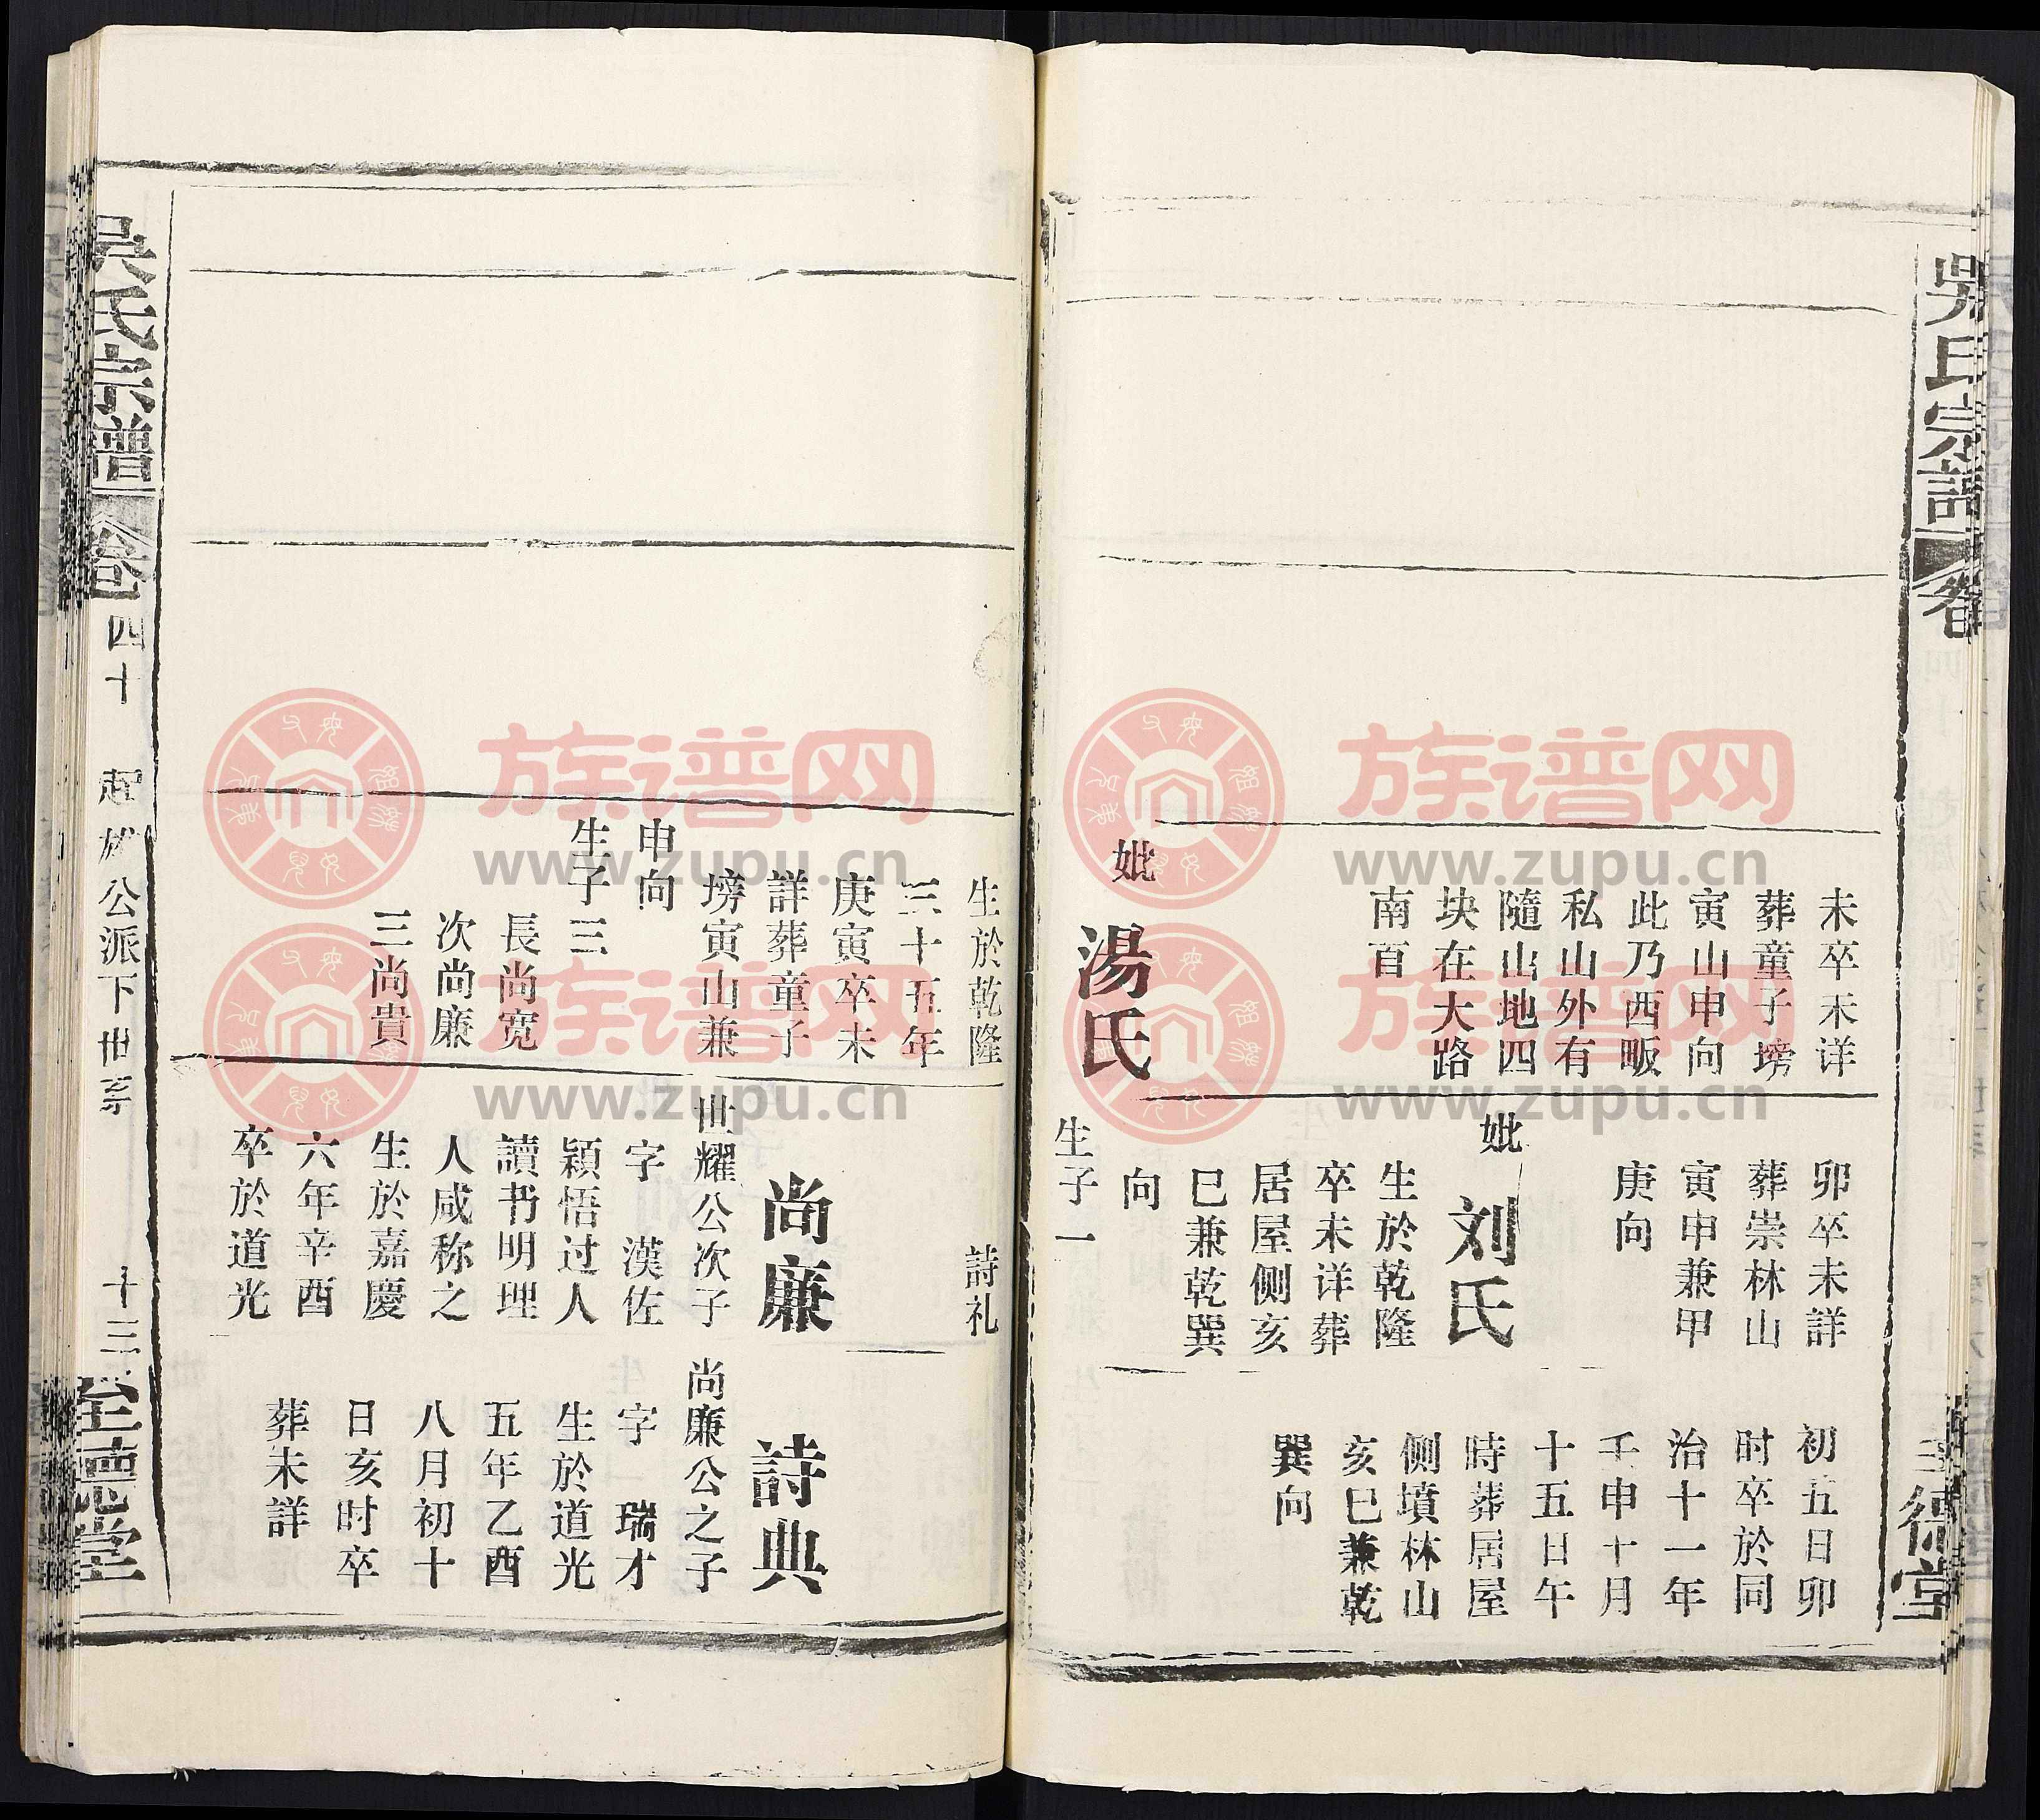 吳氏宗譜
卷
未卒未详
葬童子塝
寅山申向
此乃西畈
私山外有
隨山地四
块在大路
南首
妣
湯氏
卯卒未詳
葬崇林山
寅申兼甲
庚向
妣
刘氏
生於乾隆
卒未详葬
居屋侧亥
巳兼乾巽
向
生子一
初五日卯
时卒於同
治十一年
壬申十月
十五日午
時葬居屋
侧墳林山
亥巳兼乾
巽向
德堂
生於乾隆
三十五年
庚寅卒未
詳葬童子
塝寅山兼
申向
生子三
長尚宽
次尚廉
三尚貴
詩礼
尚廉
世耀公次子
字 漢佐
穎悟过人
讀书明理
人咸称之
生於嘉慶
六年辛酉
卒於道光
詩典
尚廉公之子
字 瑞才
生於道光
五年乙酉
八月初十
日亥时卒
葬未詳
吳氏宗譜
卷四十
起 公派下世系
十三
至德堂
族谱网
www.zupu.cn
族谱网
www.zupu.cn
族谱网
www.zupu.cn
族谱网
www.zupu.cn